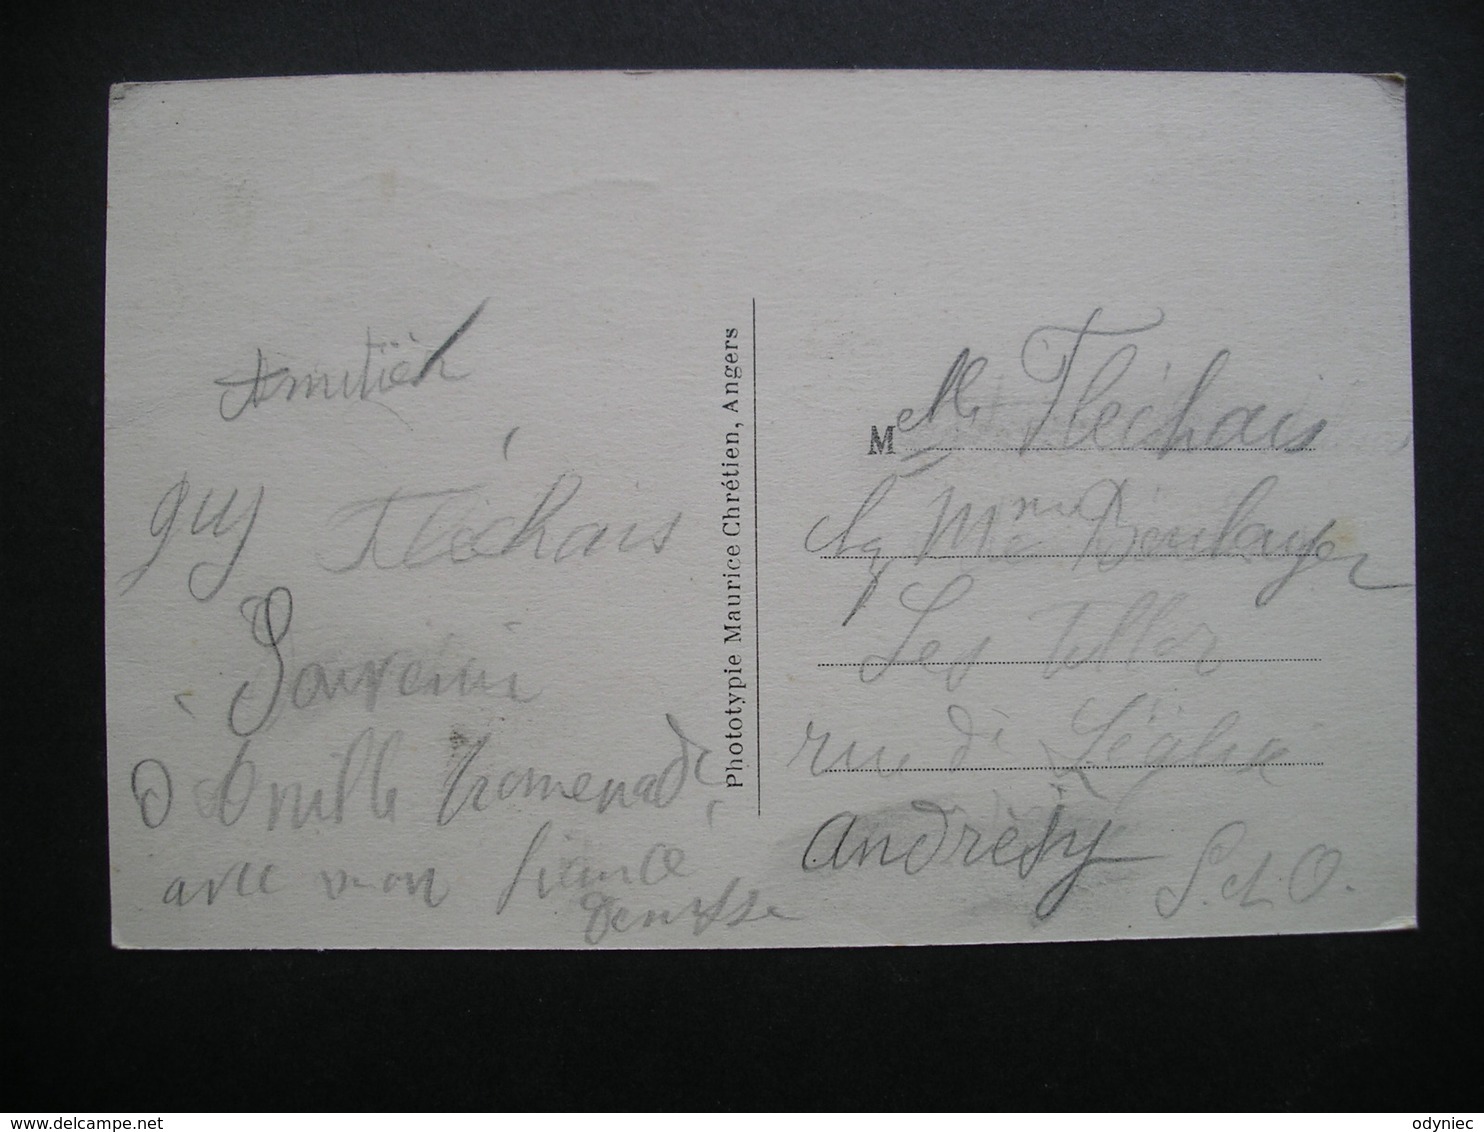 Amitiéh
guy Fléchais
Souvenir
promenade
avec mon fiancé
Denisse
Phototypie Maurice Chrétien, Angers
Melle Fléchais
Mme Boulanger
Les
rue de L'église
Andrèsy S. et. O.
delcampe.net
odyniec